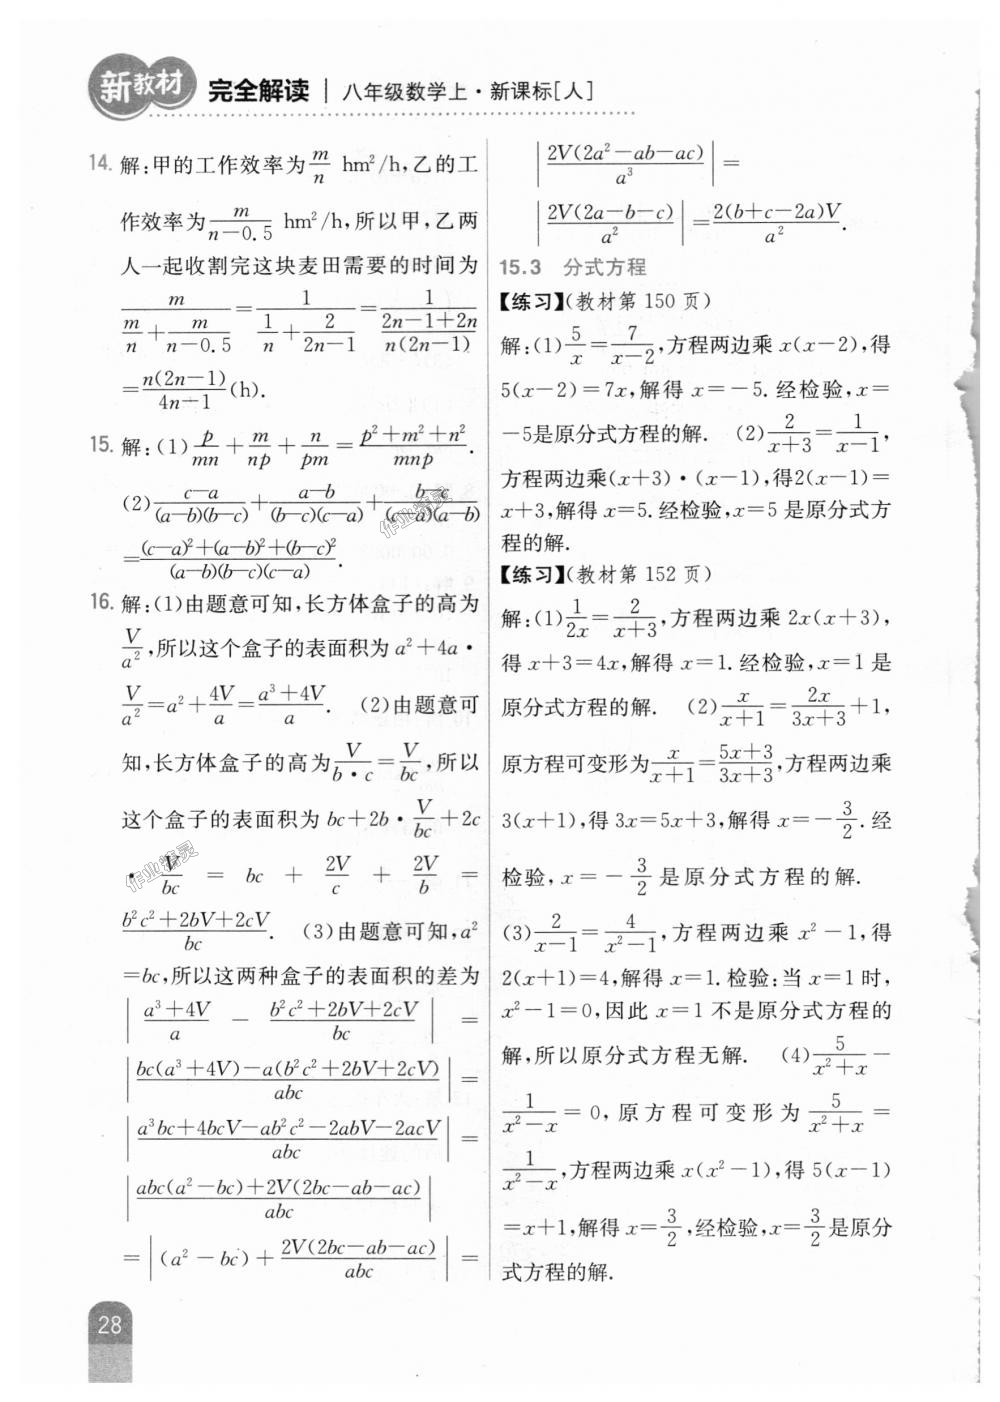 新教材 完全解读 | 八年级数学上·新课标[人]
14. 解:甲的工作效率为 m/n hm²/h,乙的工
作效率为 m/(n-0.5) hm²/h,所以甲,乙两
人一起收割完这块麦田需要的时间为
m/(m/n + m/(n-0.5)) = 1/(1/n + 2/(2n-1)) = 1/((2n-1+2n)/(n(2n-1)))
= n(2n-1)/(4n-1) (h).
15. 解:(1) p/mn + m/np + n/pm = (p²+m²+n²)/mnp.
(2) (c-a)/((a-b)(b-c)) + (a-b)/((b-c)(c-a)) + (b-c)/((c-a)(a-b))
= ((c-a)²+(a-b)²+(b-c)²)/((a-b)(b-c)(c-a)).
16. 解:(1)由题意可知,长方体盒子的高为
V/a²,所以这个盒子的表面积为 a²+4a·
V/a² = a² + 4V/a = (a³+4V)/a. (2)由题意可
知,长方体盒子的高为 V/(b·c) = V/bc,所以
这个盒子的表面积为 bc+2b·V/bc+2c
·V/bc = bc + 2V/c + 2V/b =
(b²c²+2bV+2cV)/bc. (3)由题意可知,a²
=bc,所以这两种盒子的表面积的差为
|(a³+4V)/a - (b²c²+2bV+2cV)/bc| =
|(bc(a³+4V)-a(b²c²+2bV+2cV))/abc| =
|(a³bc+4bcV-ab²c²-2abV-2acV)/abc| =
|(abc(a²-bc)+2V(2bc-ab-ac))/abc|
= |(a²-bc) + 2V(2bc-ab-ac)/abc| =
|2V(2a²-ab-ac)/a³| =
|2V(2a-b-c)/a²| = 2(b+c-2a)V/a².
15.3 分式方程
【练习】(教材第 150 页)
解:(1) 5/x = 7/(x-2),方程两边乘 x(x-2),得
5(x-2)=7x,解得 x=-5. 经检验,x=
-5是原分式方程的解. (2) 2/(x+3) = 1/(x-1),
方程两边乘(x+3)·(x-1),得2(x-1)=
x+3,解得 x=5. 经检验,x=5 是原分式方
程的解.
【练习】(教材第 152 页)
解:(1) 1/2x = 2/(x+3),方程两边乘 2x(x+3),
得 x+3=4x,解得 x=1. 经检验,x=1 是
原分式方程的解. (2) x/(x+1) = 2x/(3x+3) +1,
原方程可变形为 x/(x+1) = (5x+3)/(3x+3),方程两边乘
3(x+1),得 3x=5x+3,解得 x=-3/2. 经
检验,x=-3/2 是原分式方程的解.
(3) 2/(x-1) = 4/(x²-1),方程两边乘 x²-1,得
2(x+1)=4,解得 x=1. 检验:当 x=1 时,
x²-1=0,因此 x=1 不是原分式方程的
解,所以原分式方程无解. (4) 5/(x²+x) -
1/(x²-x) = 0,原方程可变形为 5/(x²+x) =
1/(x²-x),方程两边乘 x(x²-1),得 5(x-1)
=x+1,解得 x=3/2,经检验,x=3/2 是原分
式方程的解.
28
作业精灵
作业精灵